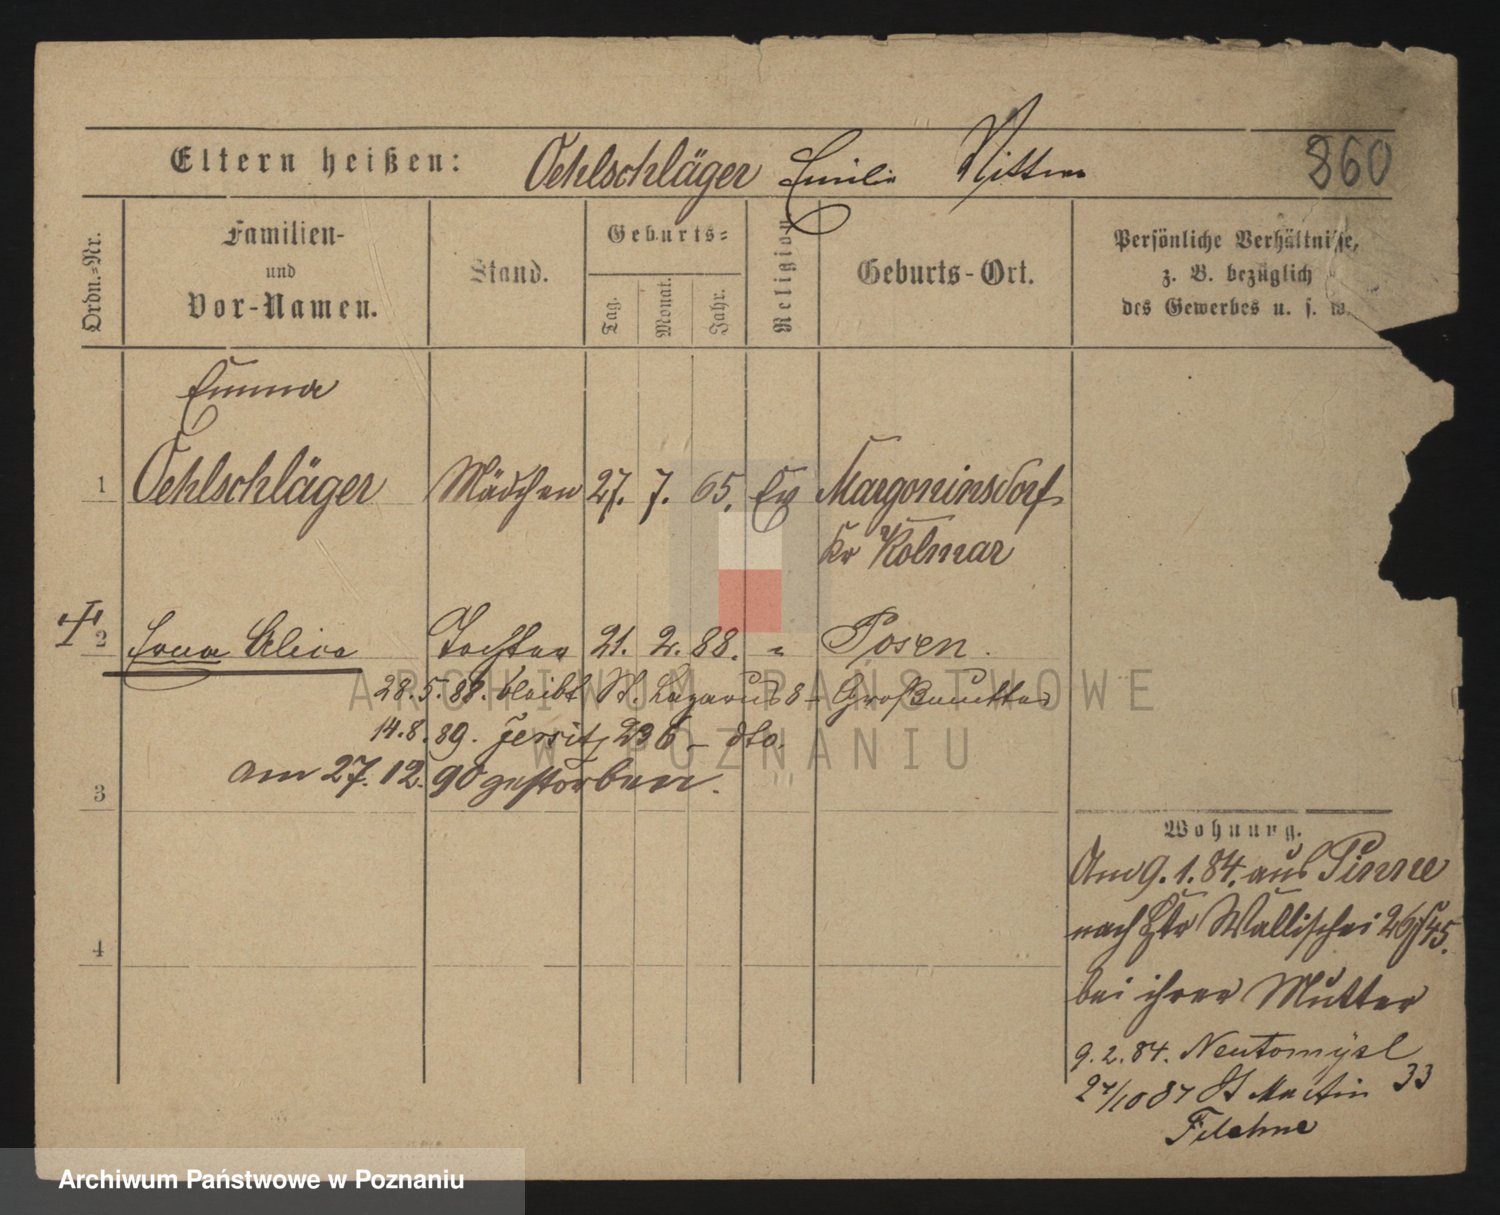 Eltern heißen: Oehlschläger Emilie
860
Ordn.-Nr.
Familien-
und
Vor-Namen.
Stand.
Geburts-
Tag.
Monat.
Jahr.
Religion
Geburts-Ort.
Persönliche Verhältnisse,
z. B. bezüglich
des Gewerbes u. s. w.
Emma
1 Oehlschläger Mädchen 27. 7. 65. Ev Margoninsdorf
Kr Kolmar
2 Erna Alice Tochter 21. 2. 88. " Posen.
28.5.88. bleibt St. Lazarus 8 - Großmutter
14.8.89. Jersitz 236 - dto.
am 27.12.90 gestorben.
3
4
Wohnung.
Am 9.1.84. aus Pinne
nach Wallischei
bei ihrer Mutter
9.2.84. Neutomysl
27/10 87 St Martin 33
Filehne
ARCHIWUM PAŃSTWOWE
W POZNANIU
Archiwum Państwowe w Poznaniu